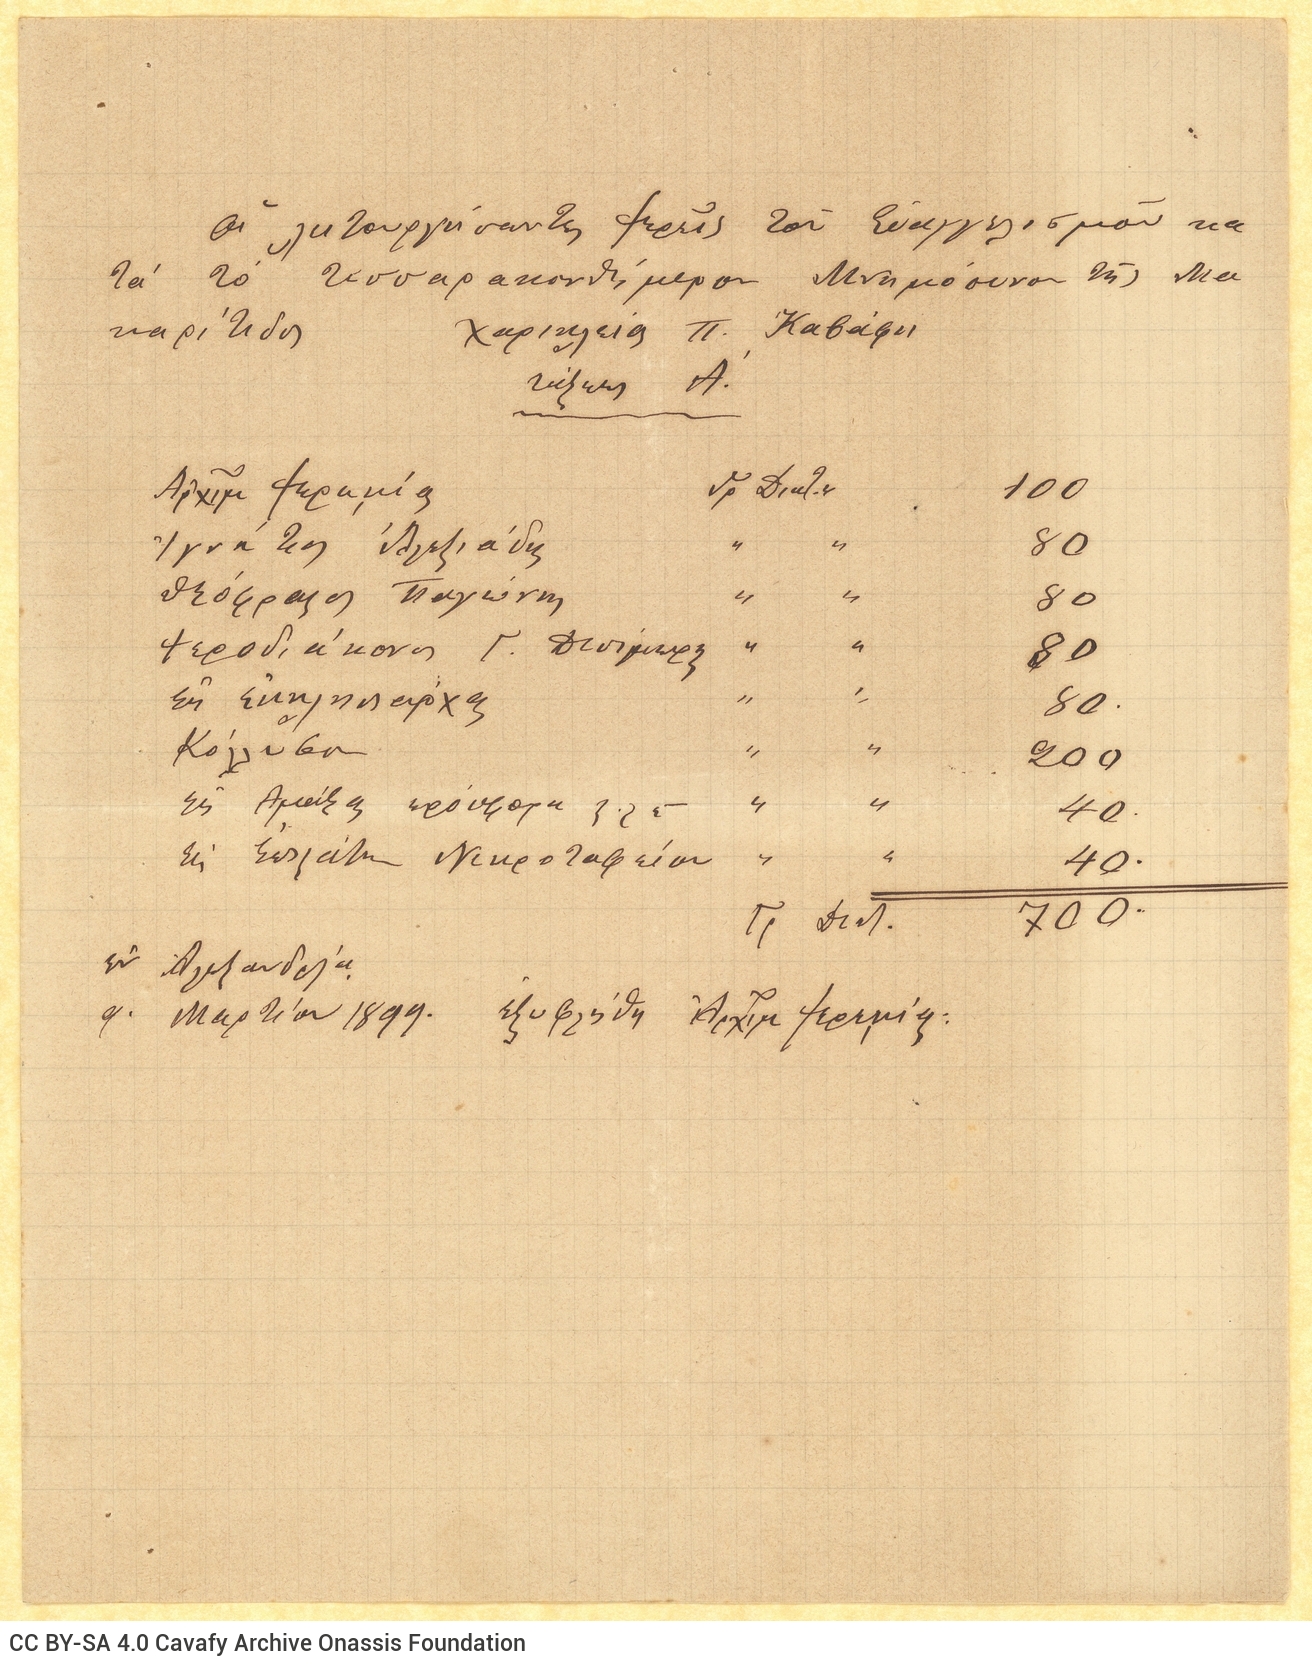 Οἱ λειτουργήσαντες Ἱερεῖς τοῦ Εὐαγγελισμοῦ κα
τά τό τεσσαρακονθήμερον Μνημόσυνον τῆς Μα
καρίτιδος Χαρικλείας Π. Καβάφη
τάξεως Α΄.
Ἀρχιμ Ἱερεμίας Γρ Διατ. 100
Ἰγνάτιος Ἀλεξιάδης " " 80
Θεόφραστος Παγώνης " " 80
Ἱεροδιάκονος Γ. " " 80
Εἰς Ἐκκλησιάρχας " " 80.
Κόλλυβον " " 200
εἰς Ἁμάξας πρόσφορα κ.λ.π " " 40.
Εἰς Ἐπιστάτην Νεκροταφείου " " 40.
Γρ Διατ. 700.
ἐν Ἀλεξανδρείᾳ
9. Μαρτίου 1899. ἐξωφλήθη Ἀρχιμ Ἱερεμίας.
CC BY-SA 4.0 Cavafy Archive Onassis Foundation